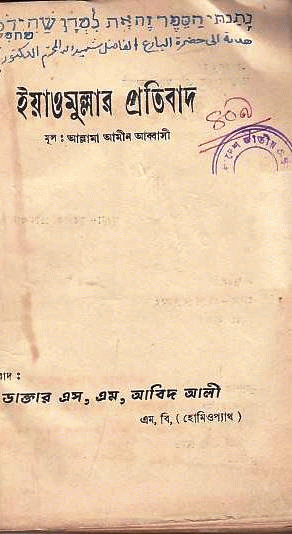 נתתי הספר הזאת למרן שהיד
هدية إلى حضرة البارع الفاضل
ইয়াওমুল্লার প্রতিবাদ
মূল : আল্লামা আমীন আব্বাসী
৪০৯
জাতীয়
বাদ :
ডাক্তার এস, এম, আবিদ আলী
এম, বি, ( হোমিওপ্যাথ )